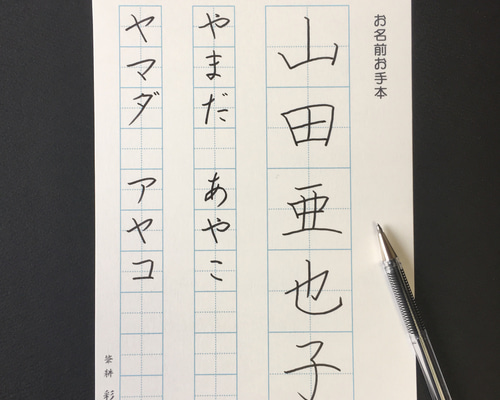 お名前お手本
山田亜也子
やまだ あやこ
ヤマダ アヤコ
筆耕 彩